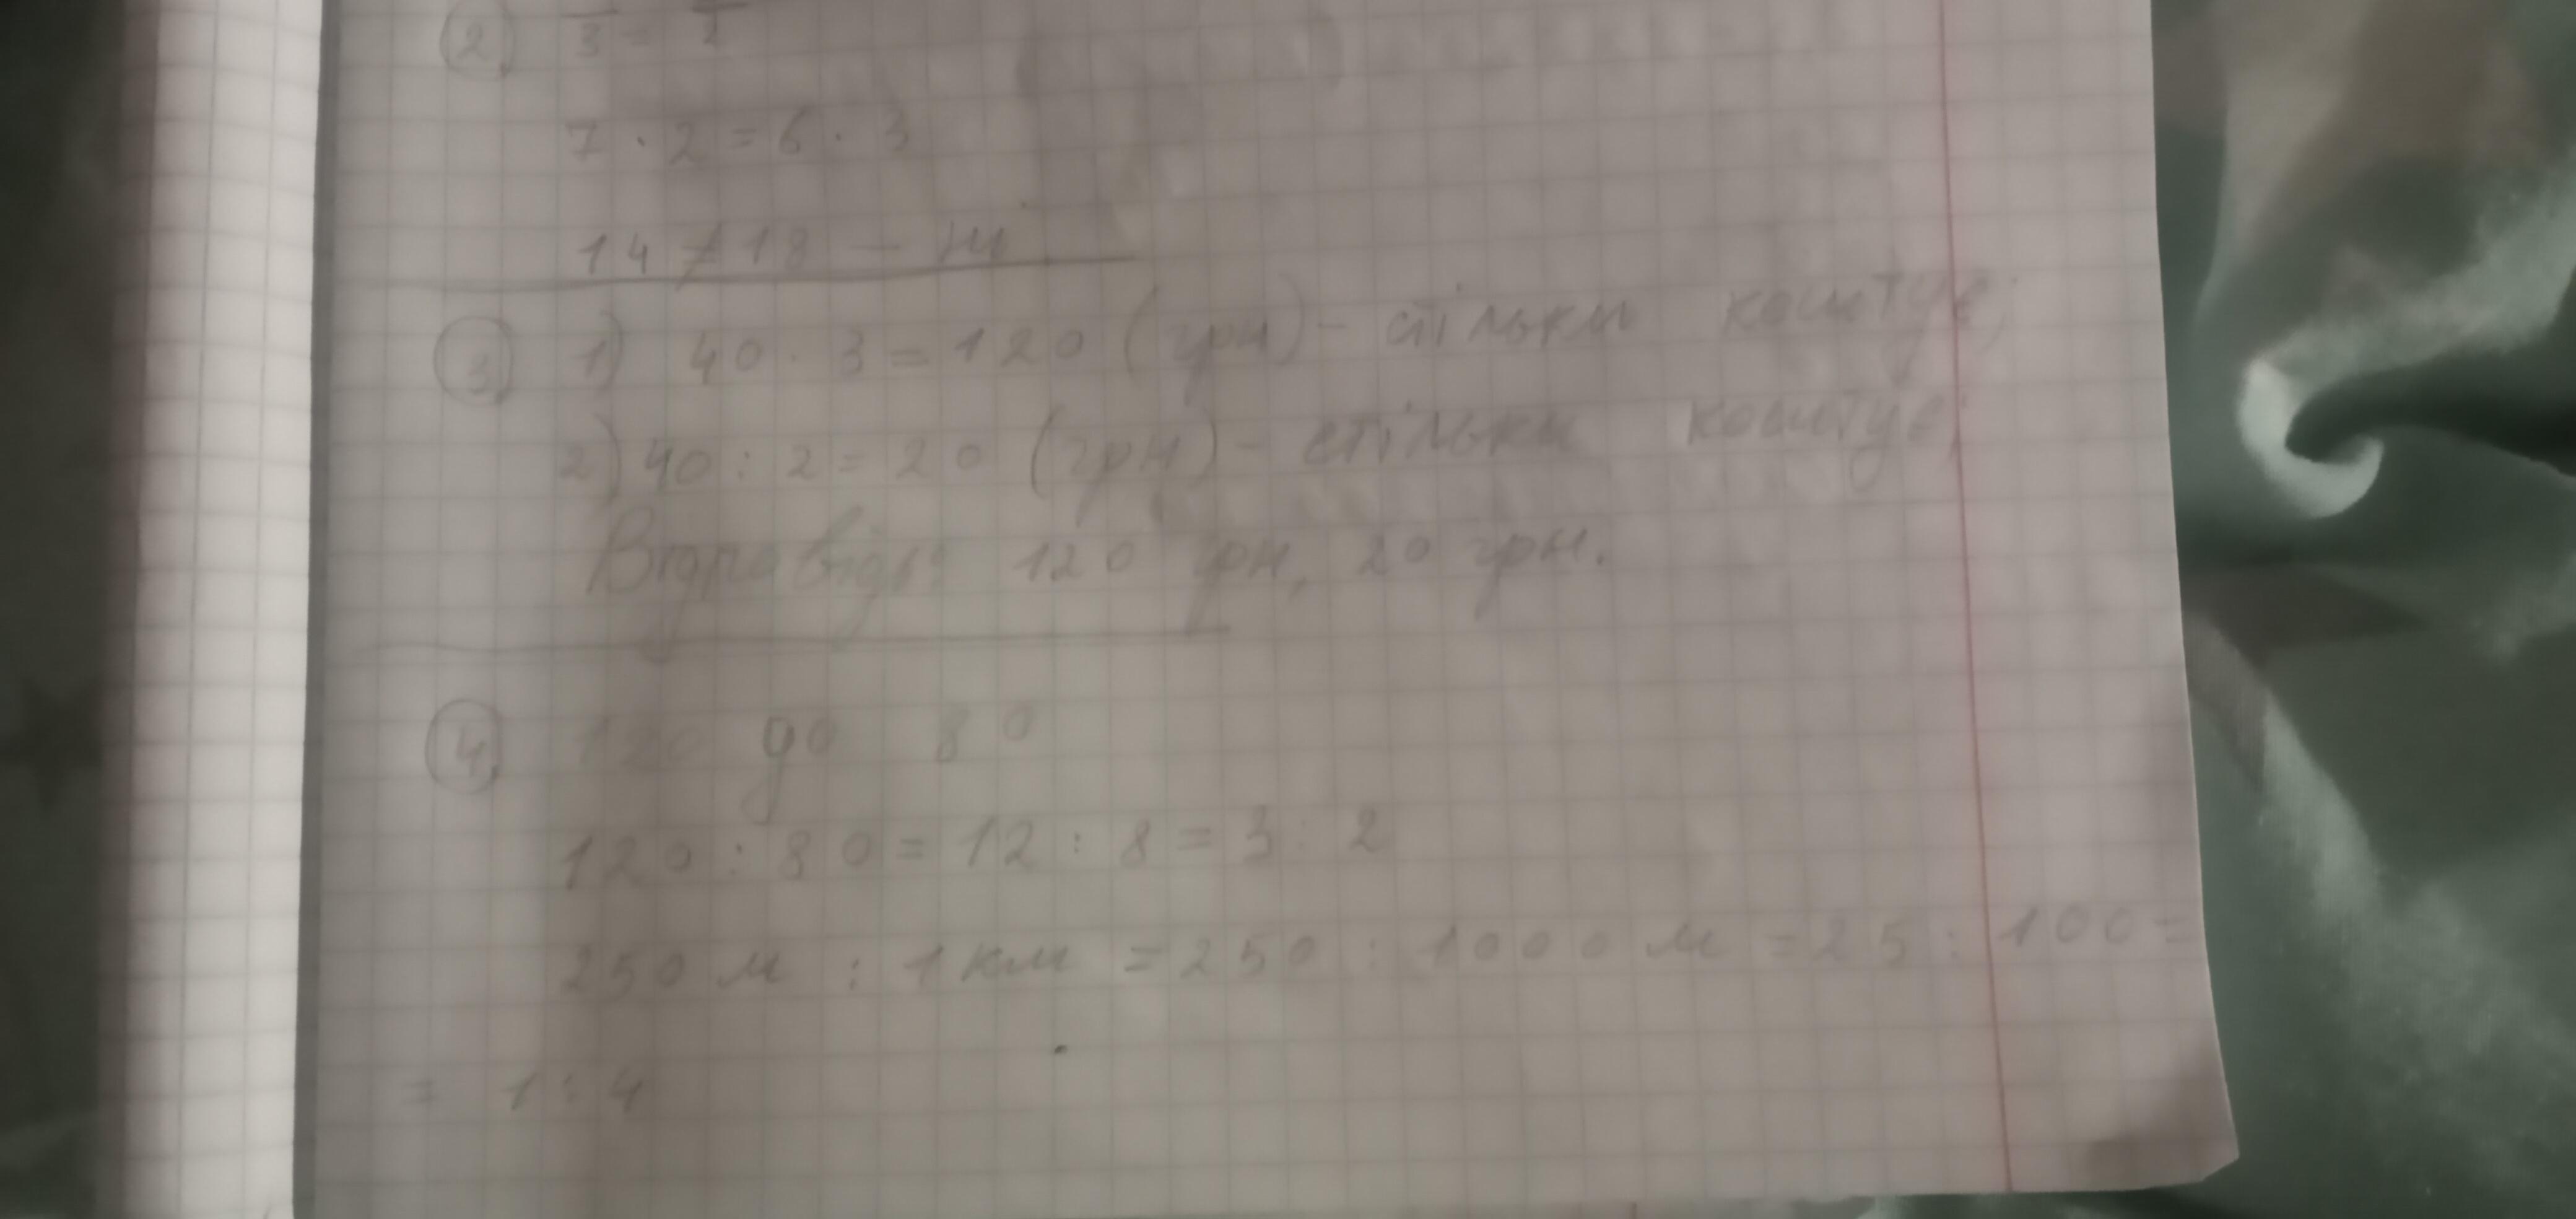 ② 3 = 2
7 · 2 = 6 · 3
14 ≠ 18 – ні
③ 1) 40 · 3 = 120 (грн) – стільки коштує;
2) 40 : 2 = 20 (грн) – стільки коштує;
Відповідь: 120 грн, 20 грн.
④ 120 до 80
120 : 80 = 12 : 8 = 3 : 2
250 м : 1 км = 250 : 1000 м = 25 : 100 =
= 1 : 4